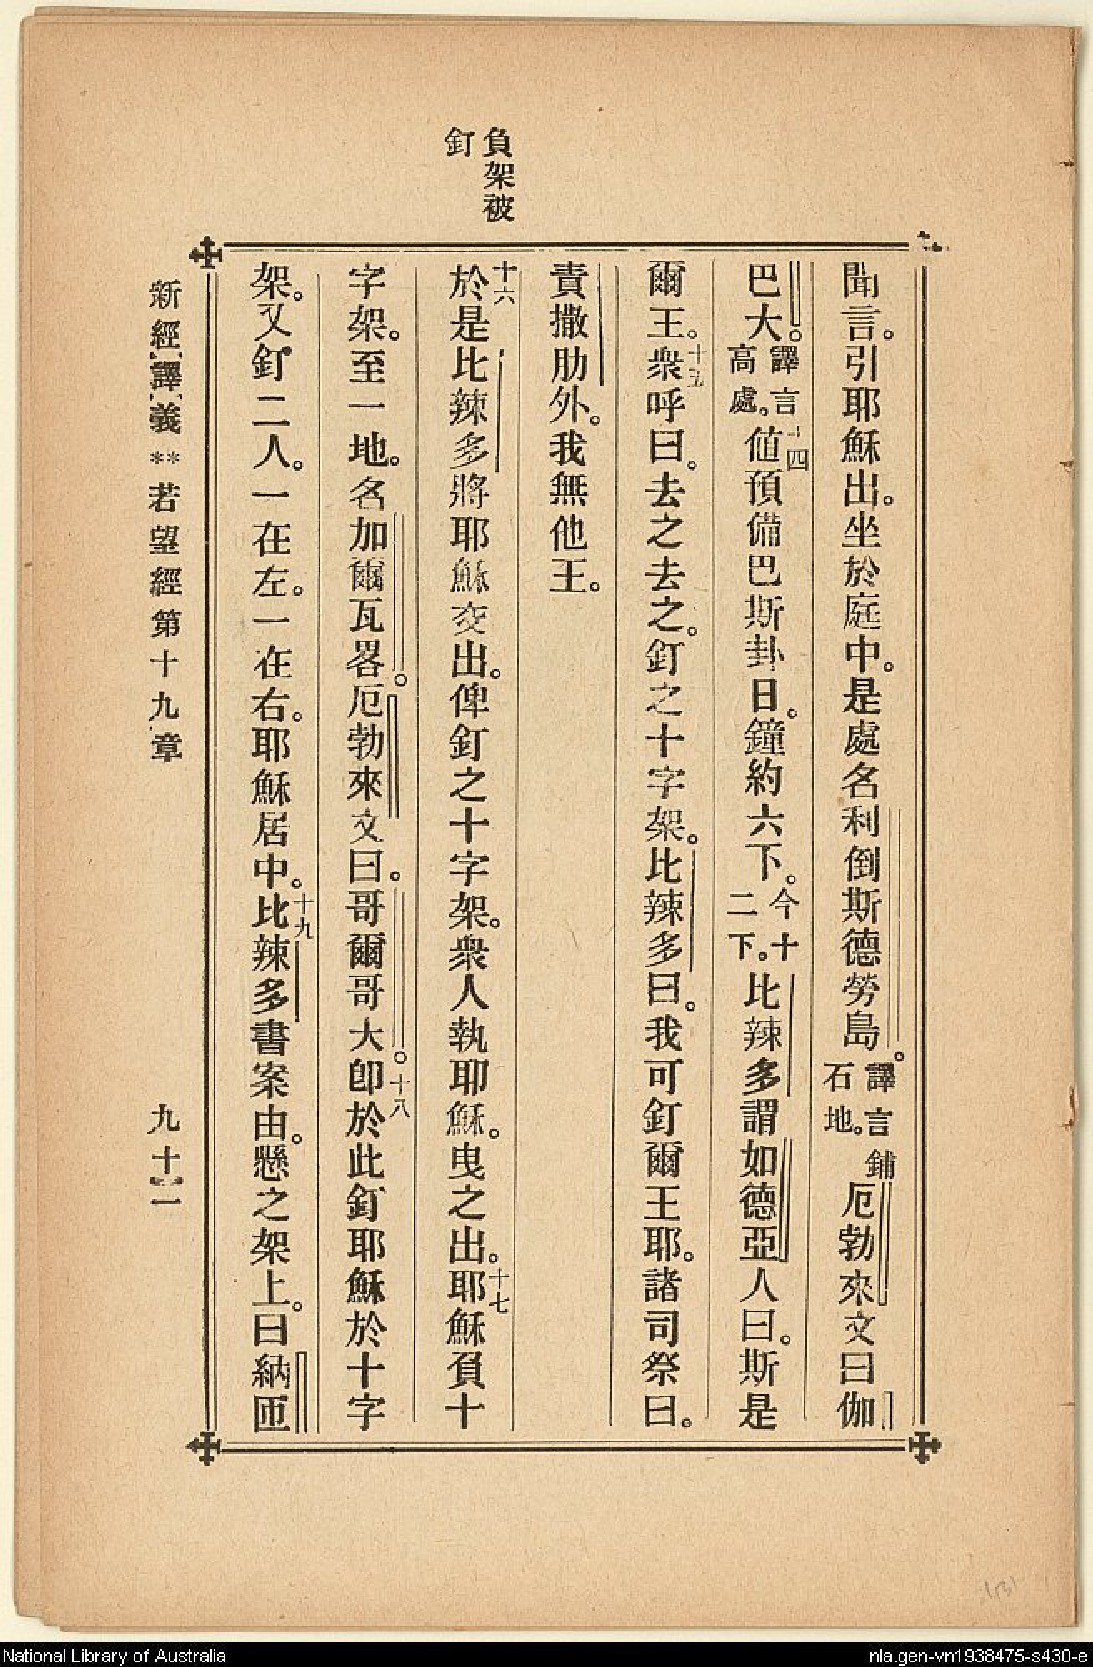 負架被
釘
聞言。引耶穌出。坐於庭中。是處名利倒斯德勞島。譯言鋪石地。厄勃來文曰伽
巴大。譯言高處。十四值預備巴斯卦日。鐘約六下。今十二下。比辣多謂如德亞人曰。斯是
爾王。十五衆呼曰。去之去之。釘之十字架。比辣多曰。我可釘爾王耶。諸司祭曰。
責撒肋外。我無他王。
十六於是比辣多將耶穌交出。俾釘之十字架。衆人執耶穌。曳之出。十七耶穌負十
字架。至一地。名加爾瓦畧。厄勃來文曰。哥爾哥大。十八卽於此釘耶穌於十字
架。又釘二人。一在左。一在右。耶穌居中。十九比辣多書案由。懸之架上。曰納匝
新經譯義**若望經第十九章 九十一
National Library of Australia
nla.gen-vn1938475-s430-e